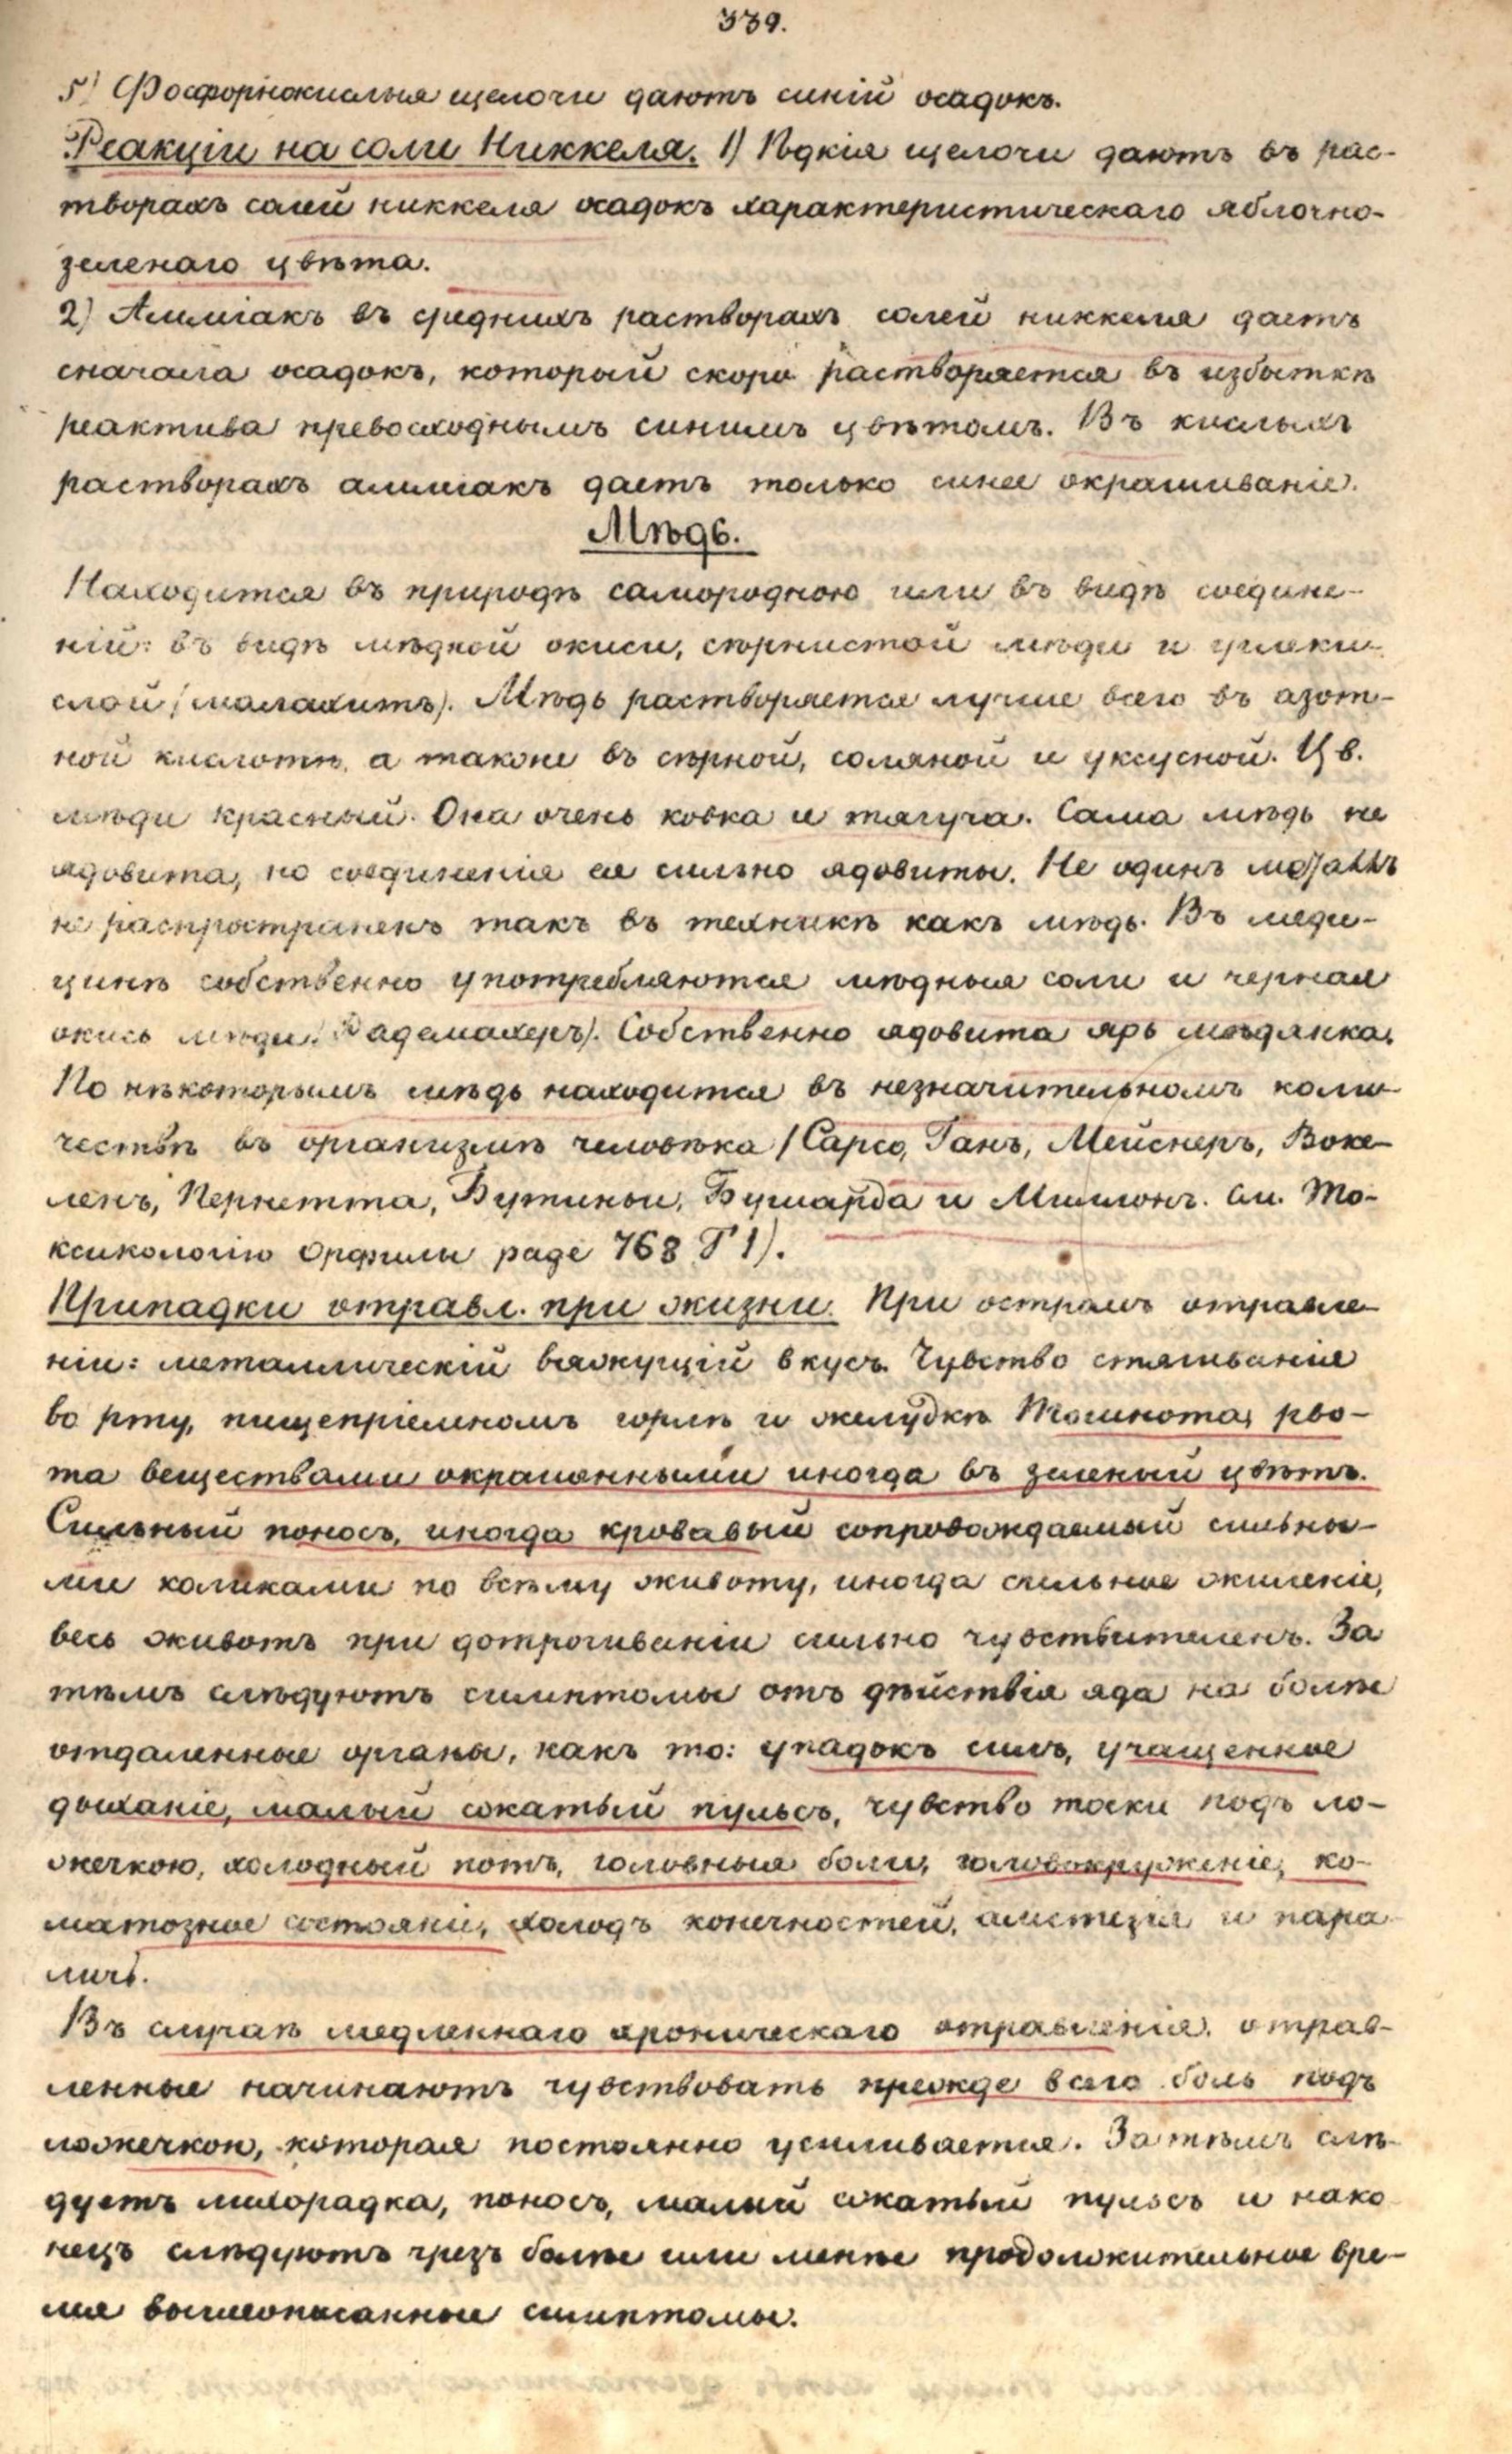 339.
5) Фосфорнокислыя щелочи даютъ синій осадокъ.
Реакціи на соли Никкеля. 1) Ѣдкія щелочи даютъ въ рас-
творахъ солей никкеля осадокъ характеристическаго яблочно-
зеленаго цвѣта.
2) Амміакъ въ среднихъ растворахъ солей никкеля даетъ
сначала осадокъ, который скоро растворяется въ избыткѣ
реактива превосходнымъ синимъ цвѣтомъ. Въ кислыхъ
растворахъ амміакъ даетъ только синее окрашиваніе.
Мѣдь.
Находится въ природѣ самородною или въ видѣ соедине-
ній: въ видѣ мѣдной окиси, сѣрнистой мѣди и углеки-
слой (малахитъ). Мѣдь растворяется лучше всего въ азот-
ной кислотѣ, а также въ сѣрной, соляной и уксусной. Цв.
мѣди красный. Она очень ковка и тягуча. Сама мѣдь не
ядовита, но соединенія ея сильно ядовиты. Не одинъ металлъ
не распространенъ такъ въ техникѣ какъ мѣдь. Въ меди-
цинѣ собственно употребляются мѣдныя соли и черная
окись мѣди (Радемахеръ). Собственно ядовита ярь мѣдянка.
По нѣкоторымъ мѣдь находится въ незначительномъ коли-
чествѣ въ организмѣ человѣка (Сарсо, Ганъ, Мейснеръ, Воке-
ленъ, Пернетта, Бутиньи, Бушарда и Миллонъ. См. То-
ксикологію Орфилы page 768 Т 1).
Припадки отравл. при жизни. При остромъ отравле-
ніи: металлическій вяжущій вкусъ. Чувство стягиванія
во рту, пищепріемномъ горлѣ и желудкѣ. Тошнота, рво-
та веществами окрашенными иногда въ зеленый цвѣтъ.
Сильный поносъ, иногда кровавый сопровождаемый сильны-
ми коликами по всему животу, иногда сильное жженіе,
весь животъ при дотрогиваніи сильно чувствителенъ. За
тѣмъ слѣдуютъ симптомы отъ дѣйствія яда на болѣе
отдаленные органы, какъ то: упадокъ силъ, учащенное
дыханіе, малый сжатый пульсъ, чувство тоски подъ ло-
жечкою, холодный потъ, головныя боли, головокруженіе, ко-
матозное состояніе, холодъ конечностей, анестезія и пара-
личъ.
Въ случаѣ медленнаго хроническаго отравленія, отрав-
ленные начинаютъ чувствовать прежде всего боль подъ
ложечкой, которая постоянно усиливается. Затѣмъ слѣ-
дуетъ лихорадка, поносъ, малый сжатый пульсъ и нако
нецъ слѣдуютъ чрезъ болѣе или менѣе продолжительное вре-
мя вышеописанные симптомы.